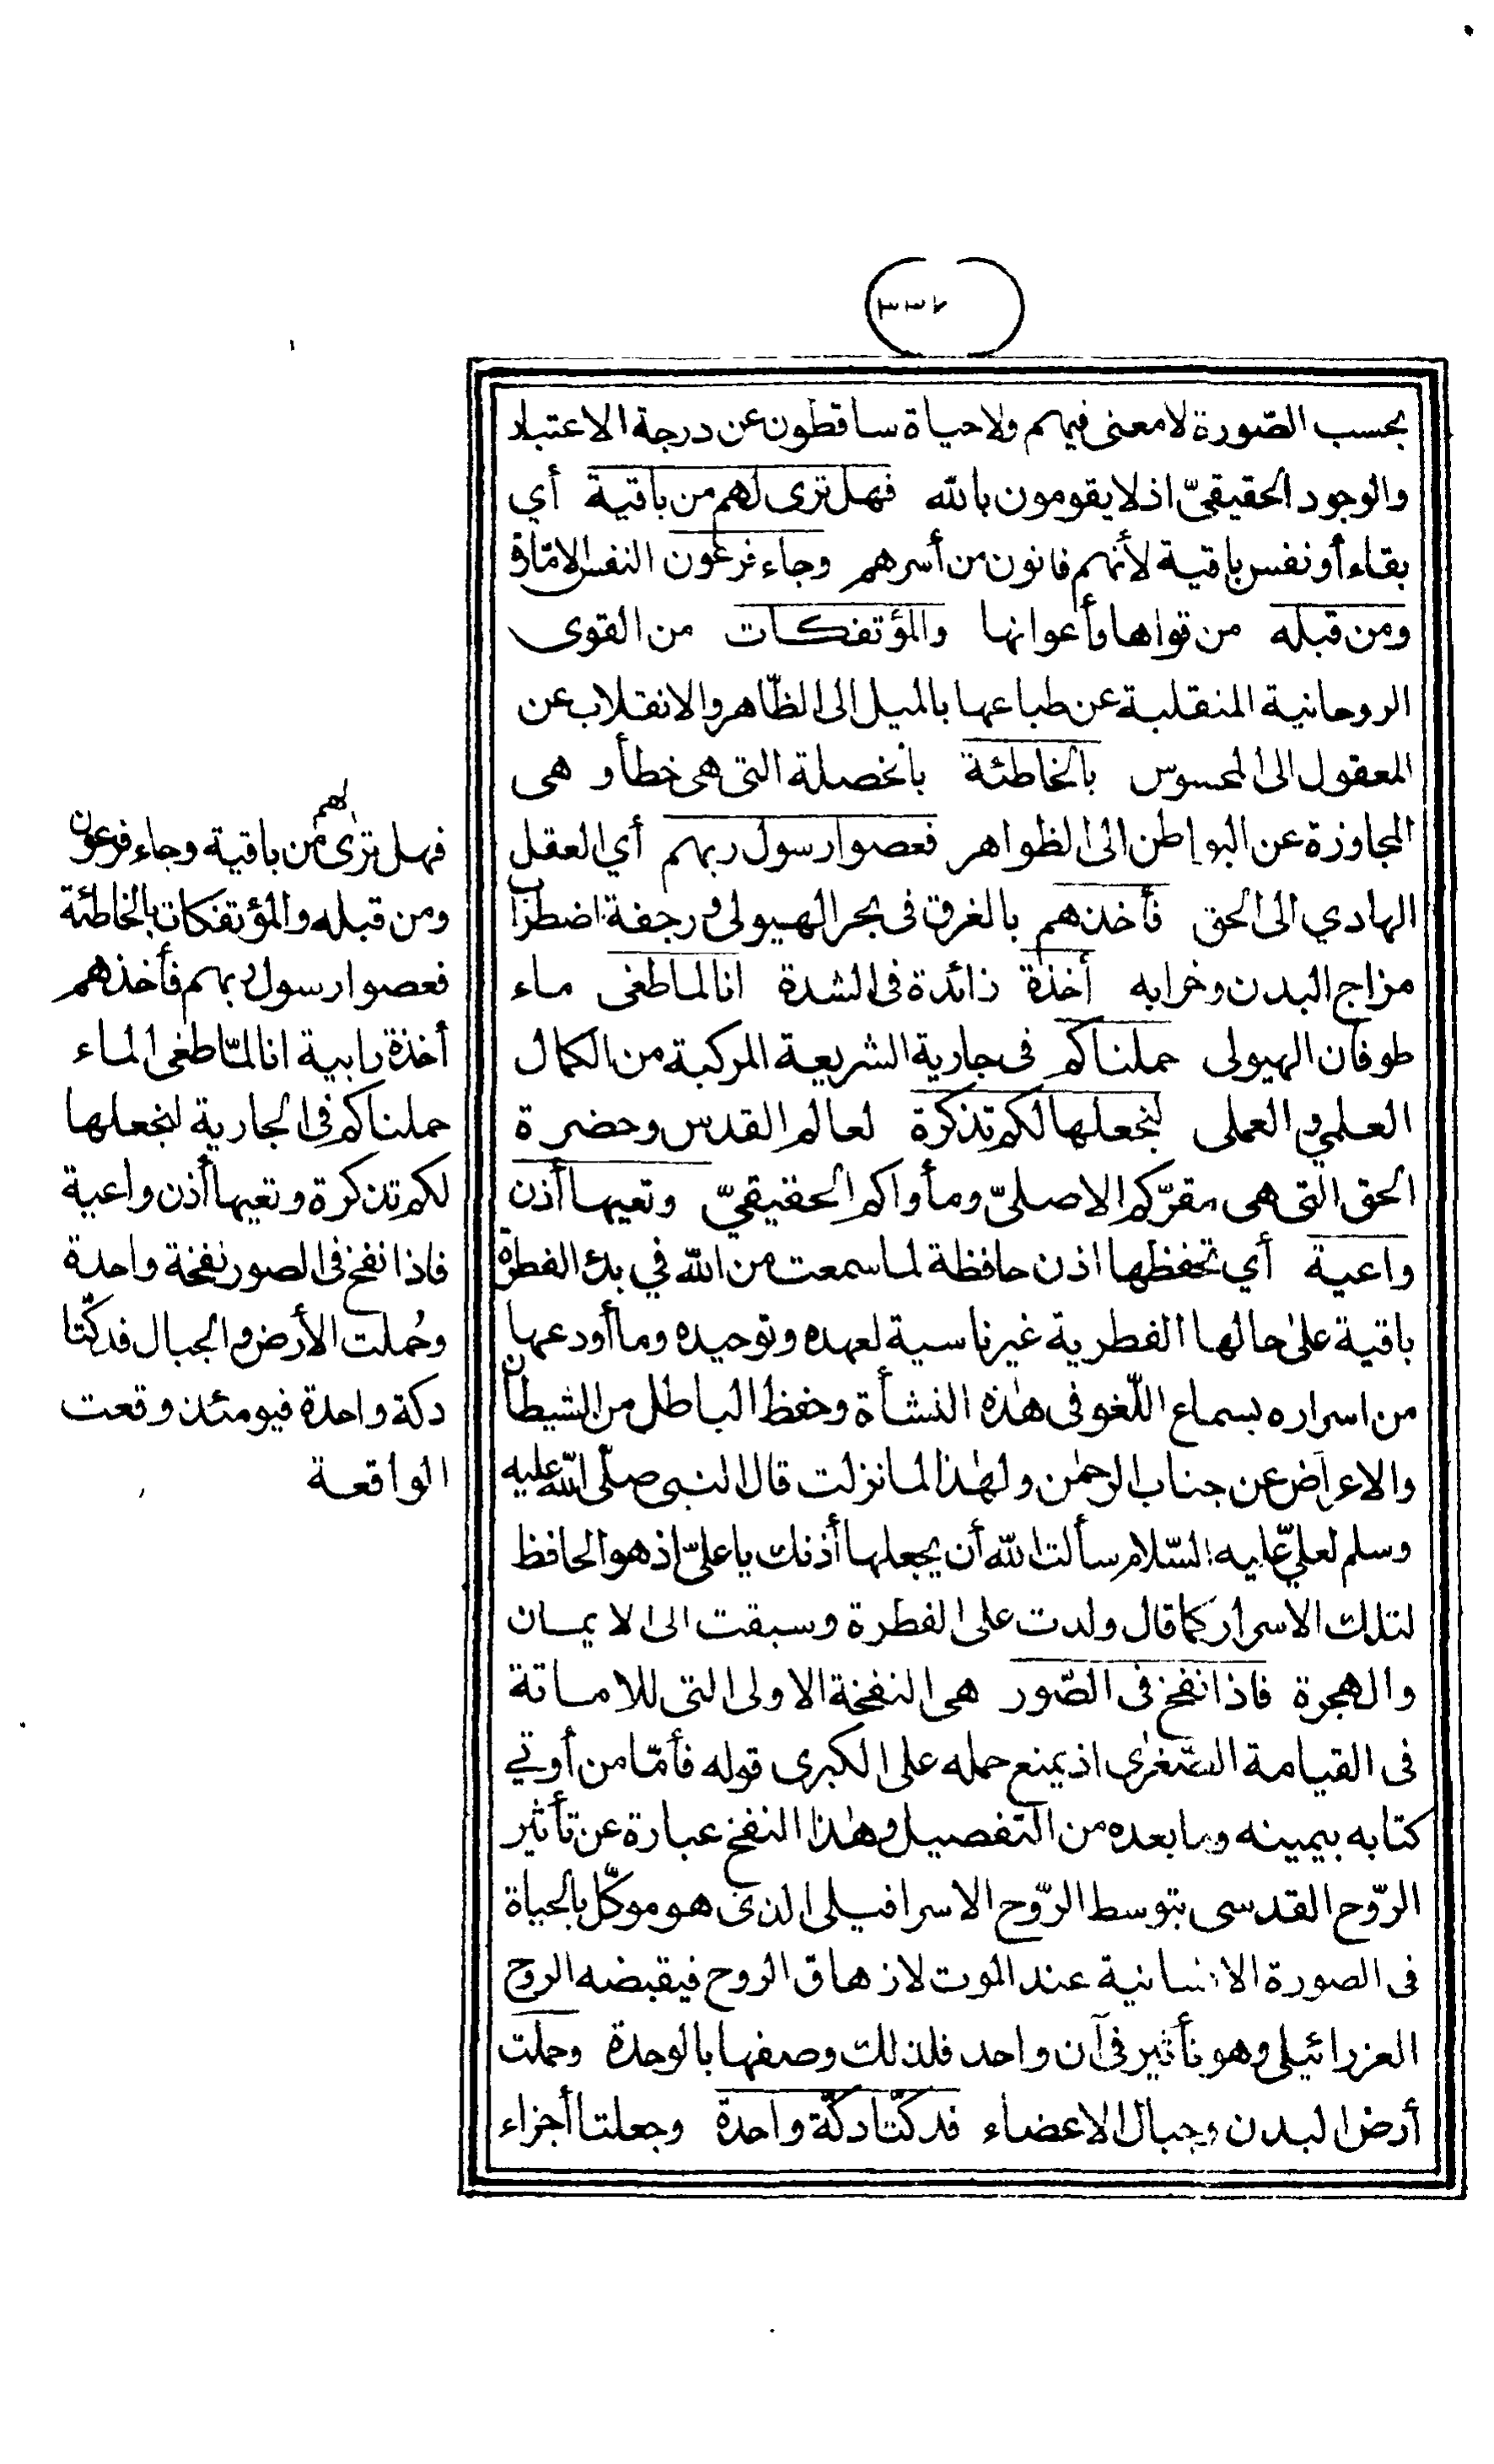 ٣٣٧
بحسب الصّورة لا معنى فيهم ولا حياة ساقطون عن درجة الاعتبار
والوجود الحقيقيّ اذ لا يقومون بالله فهل ترى لهم من باقية أي
بقاء أو نفس باقية لأنهم فانون من أسرهم وجاء فرعون النفس الامّارة
ومن قبله من قواها وأعوانها والمؤتفكات من القوى
الروحانية المنقلبة عن طباعها بالميل الى الظّاهر والانقلاب عن
المعقول الى المحسوس بالخاطئة بالخصلة التى هى خطأ و هى
المجاوزة عن البواطن الى الظواهر فعصوا رسول ربهم أي العقل
الهادي الى الحق فأخذهم بالغرق فى بحر الهيولى ورجفة اضطراب
مزاج البدن وخرابه أخذة زائدة فى الشدة انا لما طغى ماء
طوفان الهيولى حملناكم فى جارية الشريعة المركبة من الكمال
العلمي والعملى لنجعلها لكم تذكرة لعالم القدس وحضرة
الحق التى هى مقرّكم الاصليّ ومأواكم الحقيقيّ وتعيها أذن
واعية أي تحفظها اذن حافظة لما سمعت من الله في بدء الفطرة
باقية على حالها الفطرية غير ناسية لعهده وتوحيده وما أودعها
من اسراره بسماع اللّغو فى هذه النشأة وحفظ الباطل من الشيطان
والاعراض عن جناب الرحمن ولهذا لما نزلت قال النبى صلّى الله عليه
وسلم لعليّ عليه السّلام سألت الله أن يجعلها أذنك يا عليّ اذ هو الحافظ
لتلك الاسرار كما قال ولدت على الفطرة وسبقت الى الايمان
والهجرة فاذا نفخ فى الصّور هى النفخة الاولى التى للاماتة
فى القيامة الصّغرى اذ يمنع حمله على الكبرى قوله فأمّا من أوتي
كتابه بيمينه وما بعده من التفصيل وهذا النفخ عبارة عن تأثير
الرّوح القدسى بتوسط الرّوح الاسرافيلى الذى هو موكّل بالحياة
فى الصورة الانسانية عند الموت لازهاق الروح فيقبضه الروح
العزرائيلى وهو تأثير فى آن واحد فلذلك وصفها بالوحدة وحملت
أرض البدن وجبال الاعضاء فدكّتا دكّة واحدة وجعلتا أجزاء
فهل ترى لهم من باقية وجاء فرعون
ومن قبله والمؤتفكات بالخاطئة
فعصوا رسول ربهم فأخذهم
أخذة رابية انا لمّا طغى الماء
حملناكم فى الجارية لنجعلها
لكم تذكرة وتعيها أذن واعية
فاذا نفخ فى الصور نفخة واحدة
وحُملت الأرض والجبال فدكّتا
دكة واحدة فيومئذ وقعت
الواقعة